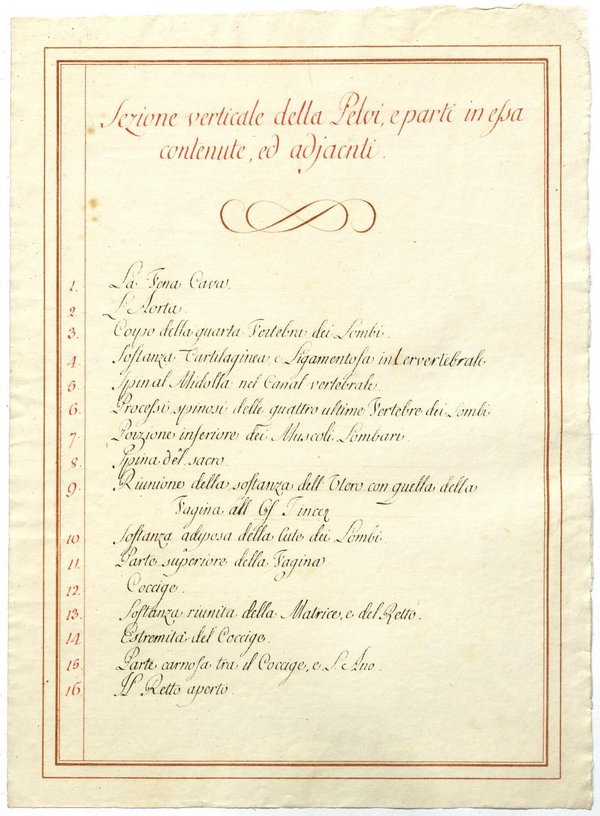 Sezione verticale della Pelvi, e parti in essa
contenute, ed adjacnti.
1. La Vena Cava.
2. L'Aorta.
3. Corpo della quarta Vertebra dei Lombi.
4. Sostanza Cartilaginea e Ligamentosa intervertebrale
5. Spinal Midolla nel Canal vertebrale.
6. Processi spinosi delle quattro ultime Vertebre dei Lombi
7. Porzione inferiore dei Muscoli Lombari.
8. Spina del sacro.
9. Riunione della sostanza dell'Utero con quella della
Vagina all Os Tincæ
10. Sostanza adiposa della Cute dei Lombi.
11. Parte superiore della Vagina
12. Coccige.
13. Sostanza riunita della Matrice, e del Retto.
14. Estremità del Coccige.
15. Parte carnosa tra il Coccige, e L'Ano.
16 Il Retto aperto.